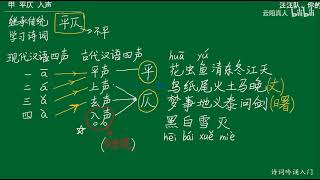 甲 平仄 入声
汪汪队 你的
云阳真人 bilibili
继承传统 平仄
学习诗词 不平
现代汉语四声 古代汉语四声 huā yú
一 ā 平声 平 花虫鱼清东冬江天
二 á 上声 鸟纸尾火马晚(文)
三 ǎ 去声 仄 梦事地义泰问剑(曙)
四 à 入声 黑白雪灭
hēi bái xuě miè
诗词吟诵入门